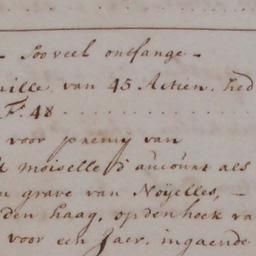 - Soo veel ontfange -
aille, van 45 Actien, hed
F. 48
voor premij van
moiselle d'aucourt als
grave van Noÿelles, -
den haag, op den hoek va
voor een Jaer, ingaende